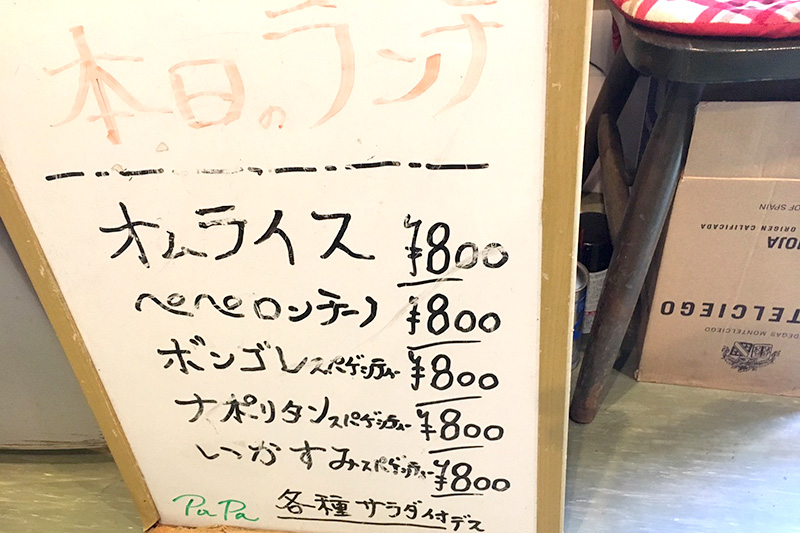 本日のランチ
オムライス ¥800
ペペロンチーノ ¥800
ボンゴレスパゲッティー ¥800
ナポリタンスパゲッティー ¥800
いかすみスパゲッティー ¥800
PaPa 各種サラダ付デス
OF SPAIN
ORIGEN CALIFICADA
OJA
TELCIEGO
DEGAS MONTELCIEGO